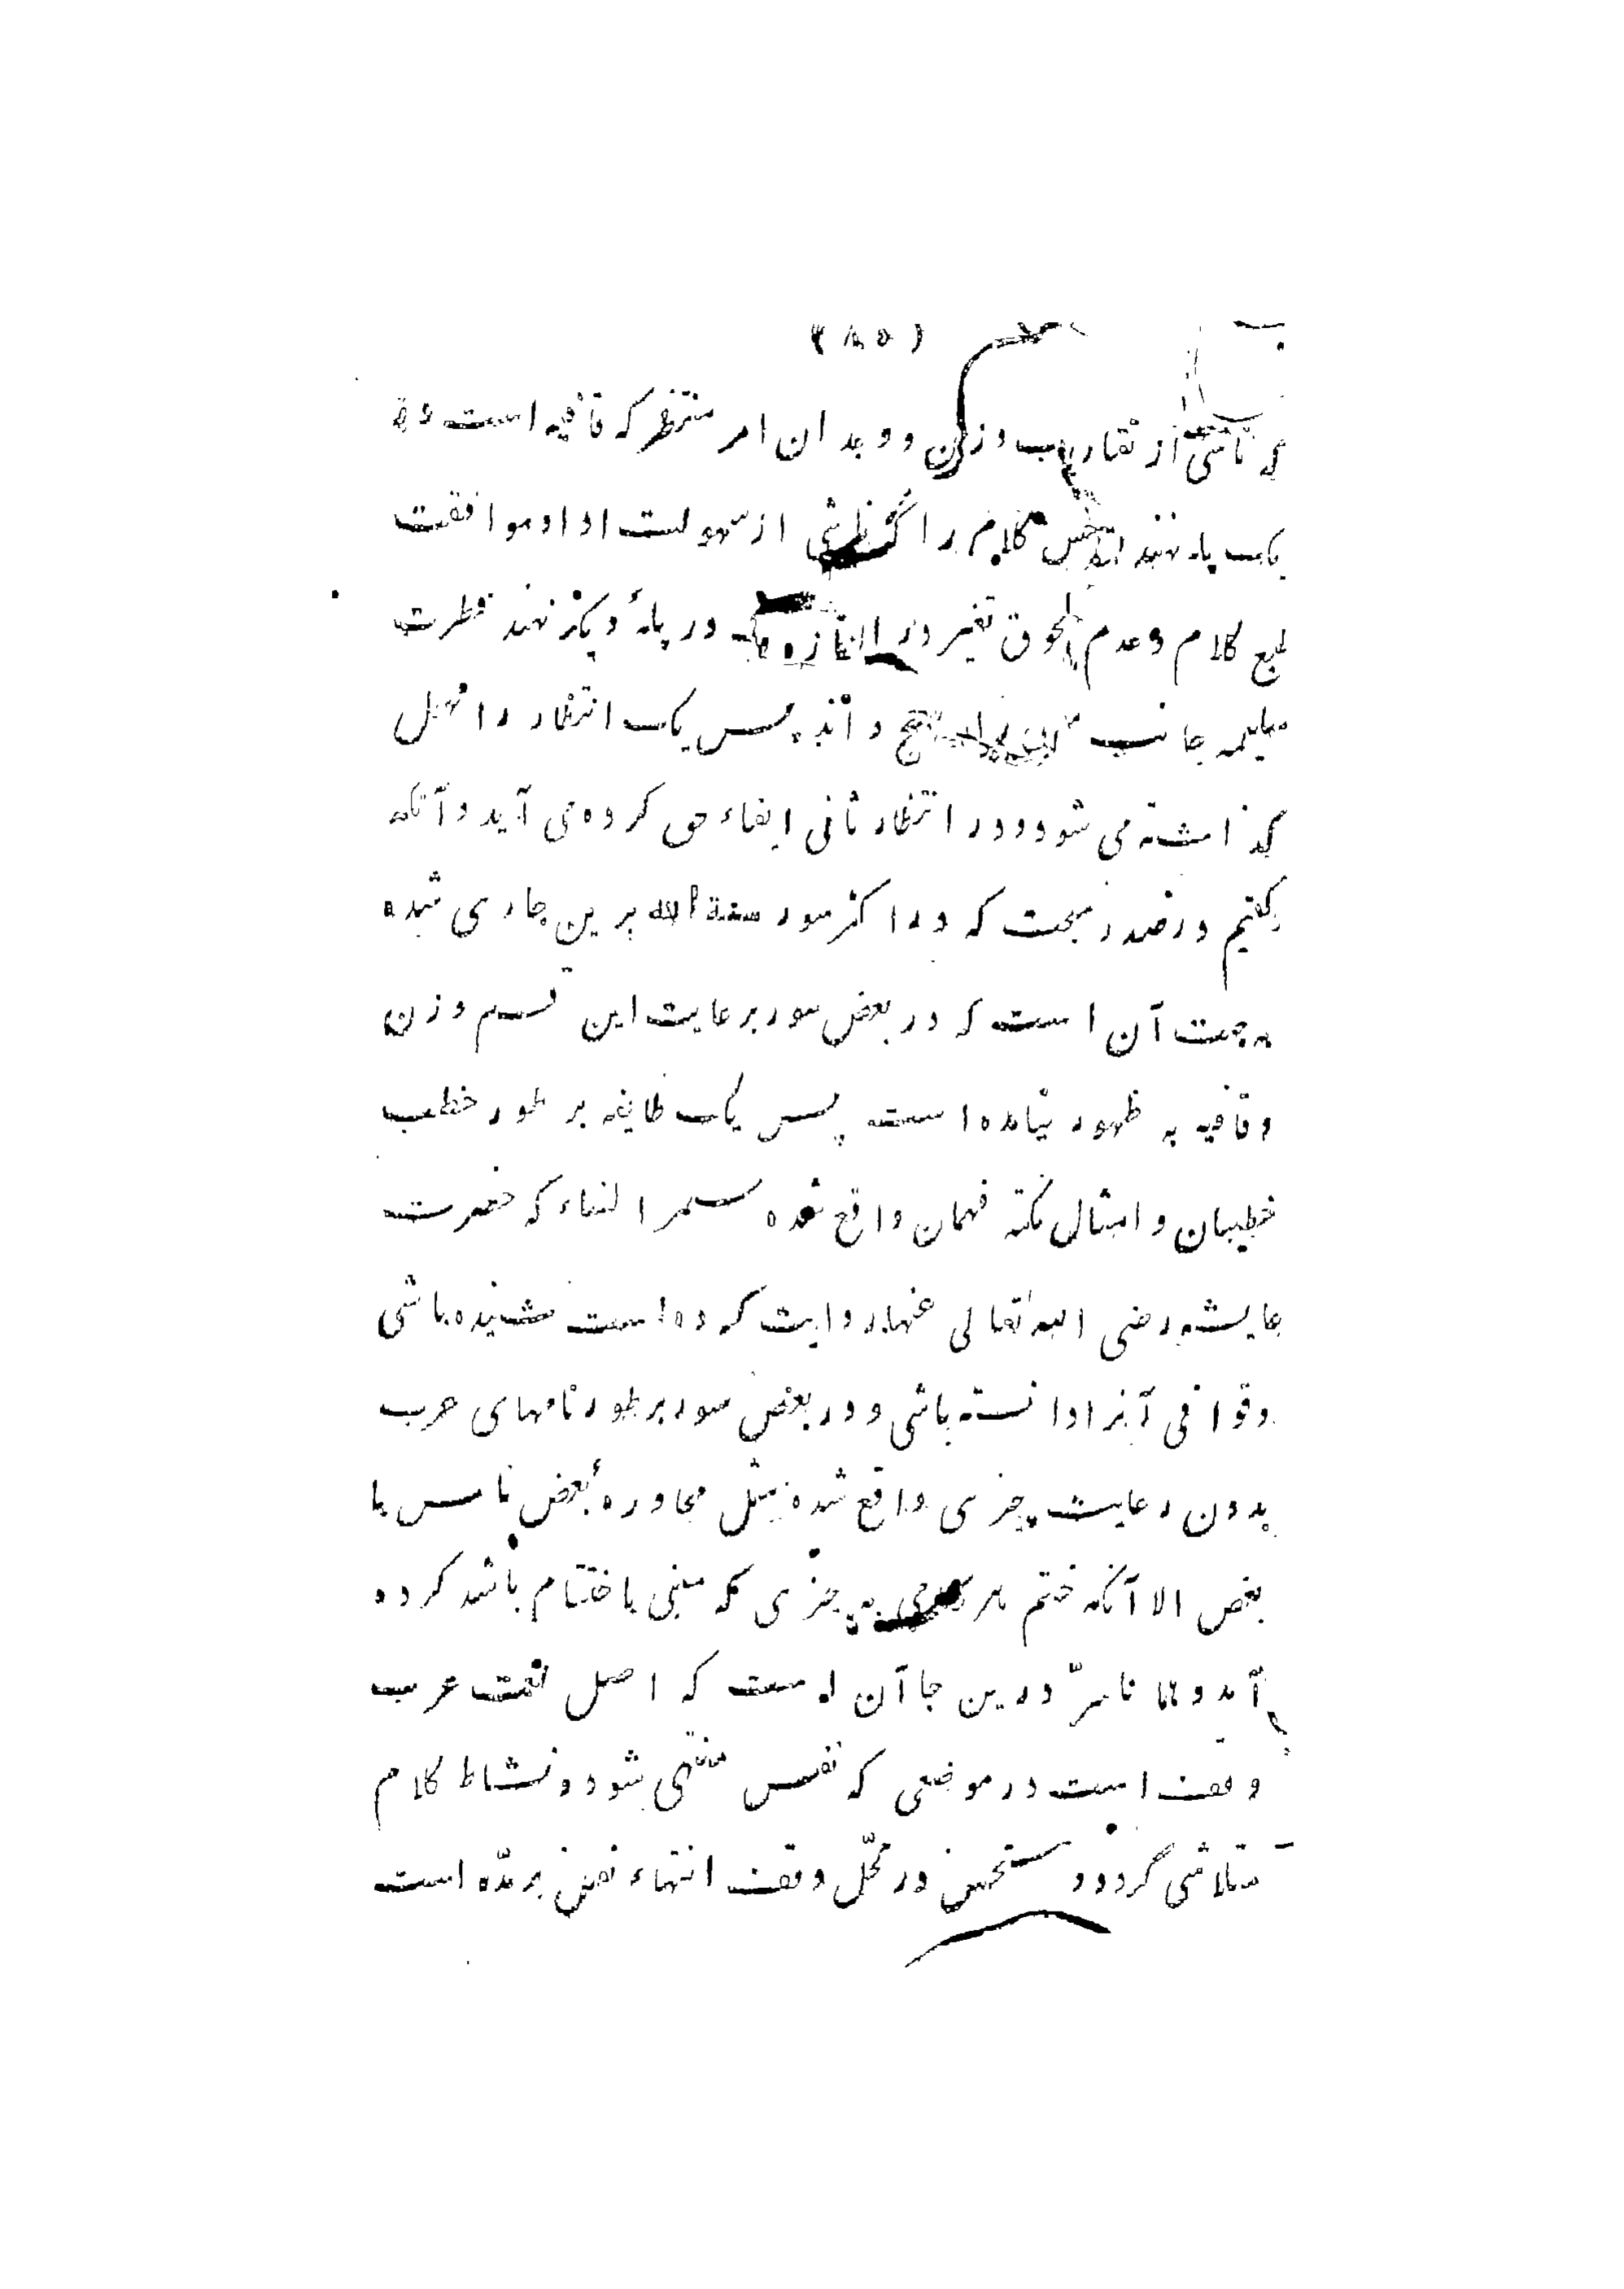 (٨٥)
که ناشی از تقارب وزن و وجدان امر منتظر که قافیه است در
یک پله نهند حسن کلام را که ناشی از سهولت ادا و موافقت
طبع کلام و عدم لحوق تغیر در در پلهٔ دیگر نهند فطرت
سلیمه جانب داند پس یک انتظار را مهمل
گذاشته می شود و در انتظار ثانی ایفاء حق کرده می آید و آنکه
گفتیم در صدر مبحث که در اکثر سور سنة الله برین جاری شده
به جهت آن است که در بعض سور برعایت این قسم وزن
و قافیه به ظهور نیامده است پس یک طایفه بر طور خطب
خطیبان و امثال نکته فهمان واقع شده سمر النساء که حضرت
عایشه رضی الله تعالی عنها روایت کرده است شنیده باشی
و قوافی آنرا دانسته باشی و در بعض سور بر طور نامهای عرب
بدون رعایت چیزی واقع شده مثل محاورهٔ بعض ناس با
بعض الا آنکه ختم هر کلامی به چیزی که مبنی باختتام باشد کرده
آمد و همانا سرّ درین جا آن است که اصل لغت عرب
وقف است در موضعی که نفس منتهی شود و نشاط کلام
متلاشی گردد و مستحسن در محلّ وقف انتهاء نفس بر مدّه است